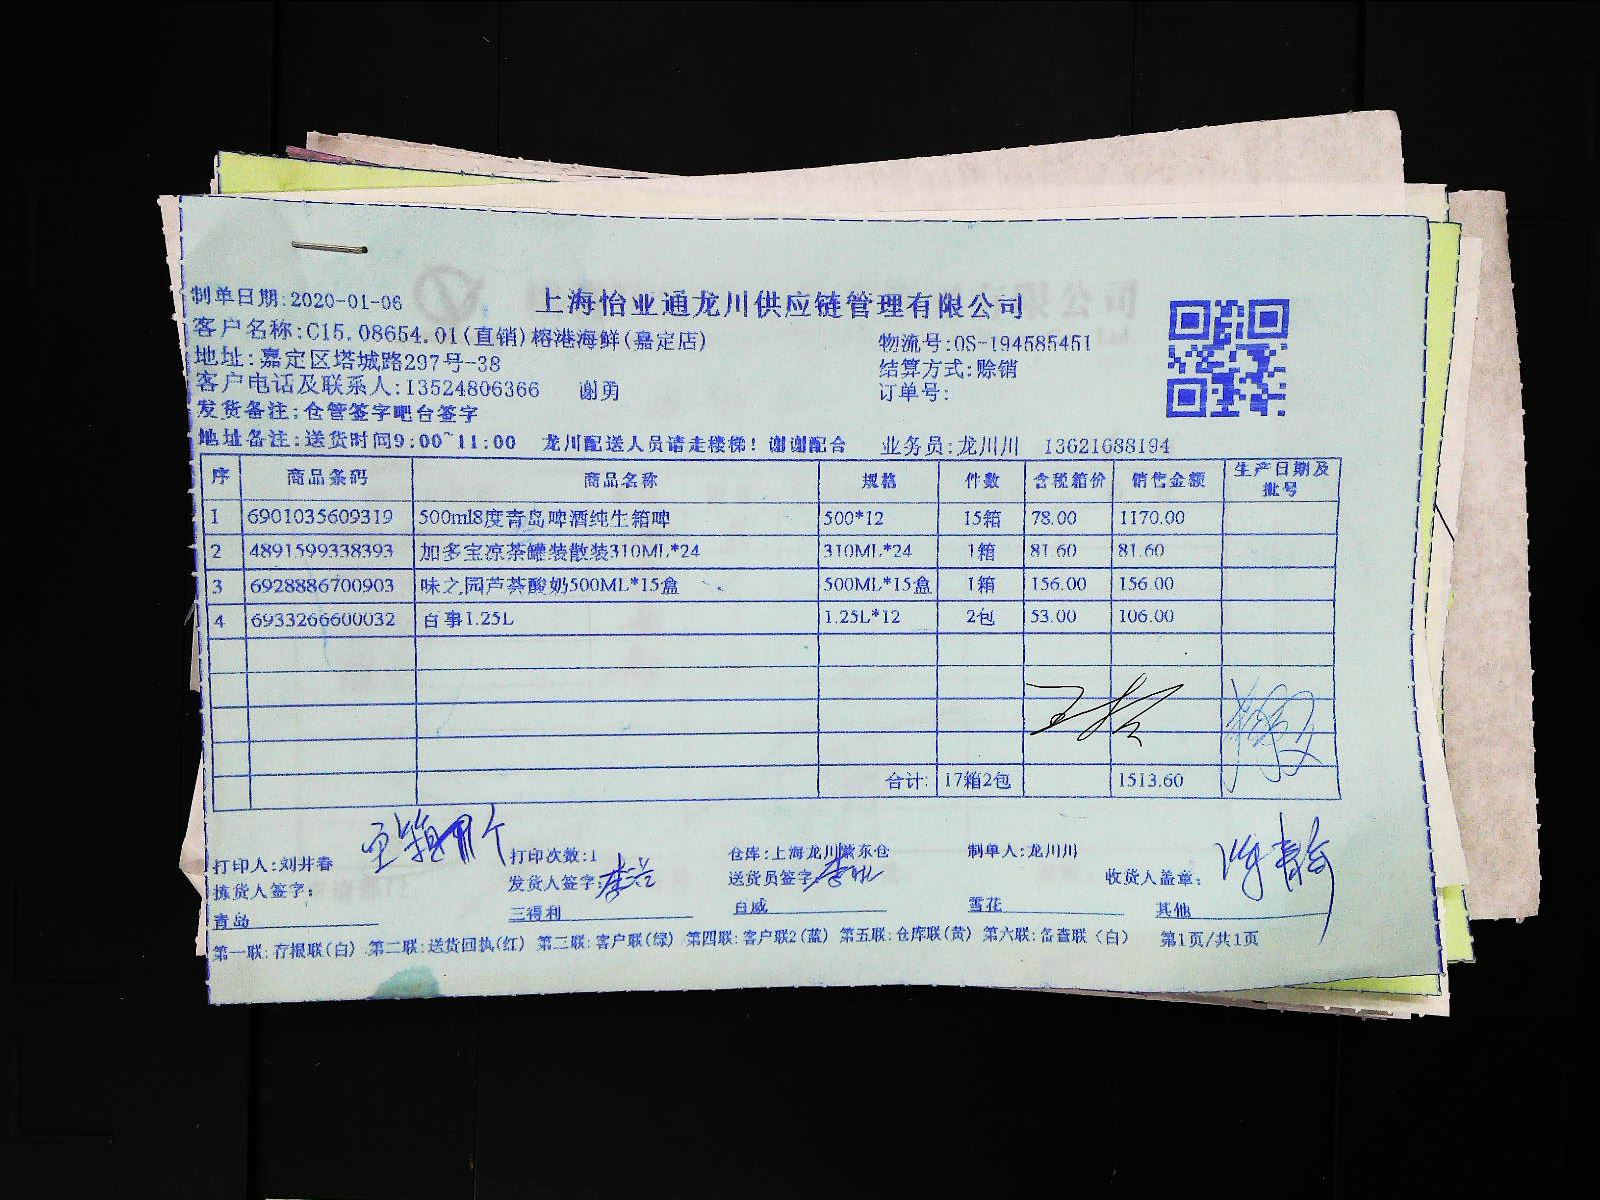 上海怡亚通龙川供应链管理有限公司
制单日期:2020-01-06
客户名称:C15.08654.01(直销)榕港海鲜(嘉定店) 物流号:OS-194585451
地址:嘉定区塔城路297号-38 结算方式:赊销
客户电话及联系人:13524806366 谢勇 订单号:
发货备注:仓管签字吧台签字
地址备注:送货时间9:00~11:00 龙川配送人员请走楼梯!谢谢配合 业务员:龙川川 13621688194
序 商品条码 商品名称 规格 件数 含税箱价 销售金额 生产日期及批号
1 6901035609319 500ml8度青岛啤酒纯生箱啤 500*12 15箱 78.00 1170.00
2 4891599338393 加多宝凉茶罐装散装310ML*24 310ML*24 1箱 81.60 81.60
3 6928886700903 味之园芦荟酸奶500ML*15盒 500ML*15盒 1箱 156.00 156.00
4 6933266600032 百事1.25L 1.25L*12 2包 53.00 106.00
合计: 17箱2包 1513.60
打印人:刘井春 打印次数:1 仓库:上海龙川紫东仓 制单人:龙川川
拣货人签字: 发货人签字: 送货员签字: 收货人盖章:
青岛 三得利 百威 雪花 其他
第一联:存根联(白) 第二联:送货回执(红) 第三联:客户联(绿) 第四联:客户联2(蓝) 第五联:仓库联(黄) 第六联:备查联(白) 第1页/共1页